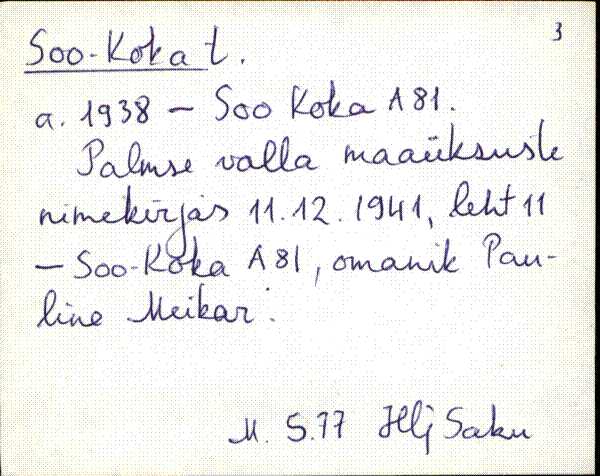 3
Soo-Koka t.
a. 1938 – Soo Koka A 81.
Palmse valla maaüksuste
nimekirjas 11.12.1941, leht 11
– Soo-Koka A 81, omanik Pau-
line Meikar.
M. 5.77 Saku